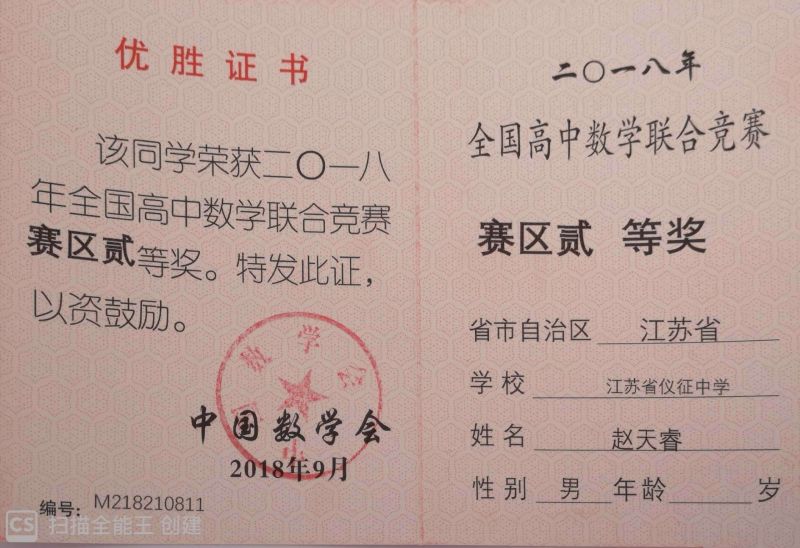 优胜证书
该同学荣获二〇一八
年全国高中数学联合竞赛
赛区贰等奖。特发此证，
以资鼓励。
中国数学会
中国数学会
2018年9月
编号：M218210811
CS 扫描全能王 创建
二〇一八年
全国高中数学联合竞赛
赛区贰 等奖
省市自治区 江苏省
学校 江苏省仪征中学
姓名 赵天睿
性别 男 年龄 岁